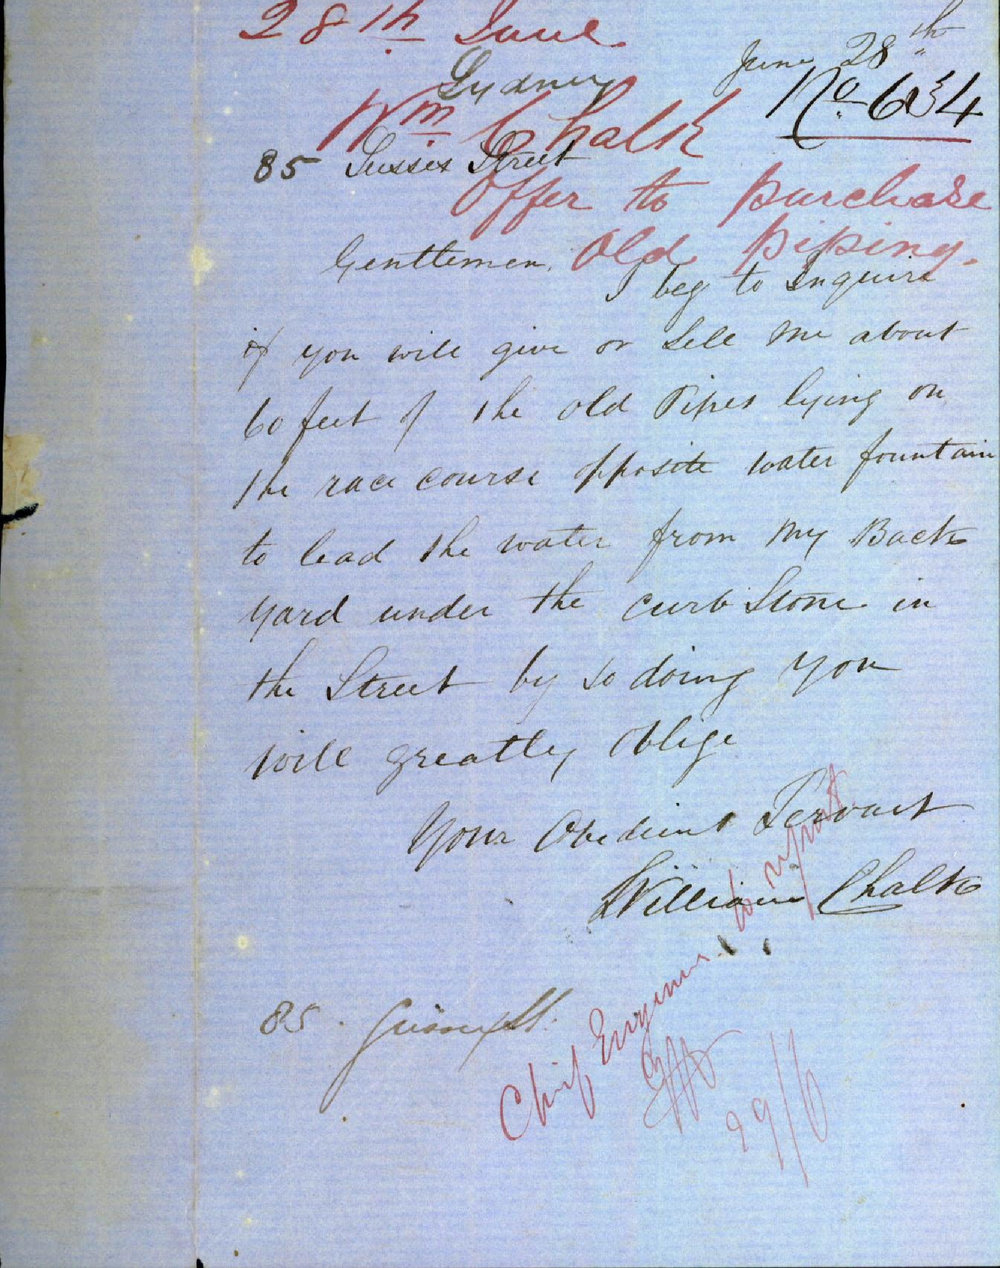 28th June
Sydney June 28th
No. 634
Wm Chalk
85 Sussex Street
Offer to purchase
Old piping.
Gentlemen,
I beg to Inquire
if you will give or Sell me about
60 feet of the old Pipes lying on
the race course opposite water fountain
to lead the water from my Back
yard under the curb Stone in
the Street by so doing you
will greatly oblige
Your Obedient Servant
William Chalk
85 Sussex St.
Chief Engineer to report
29/6